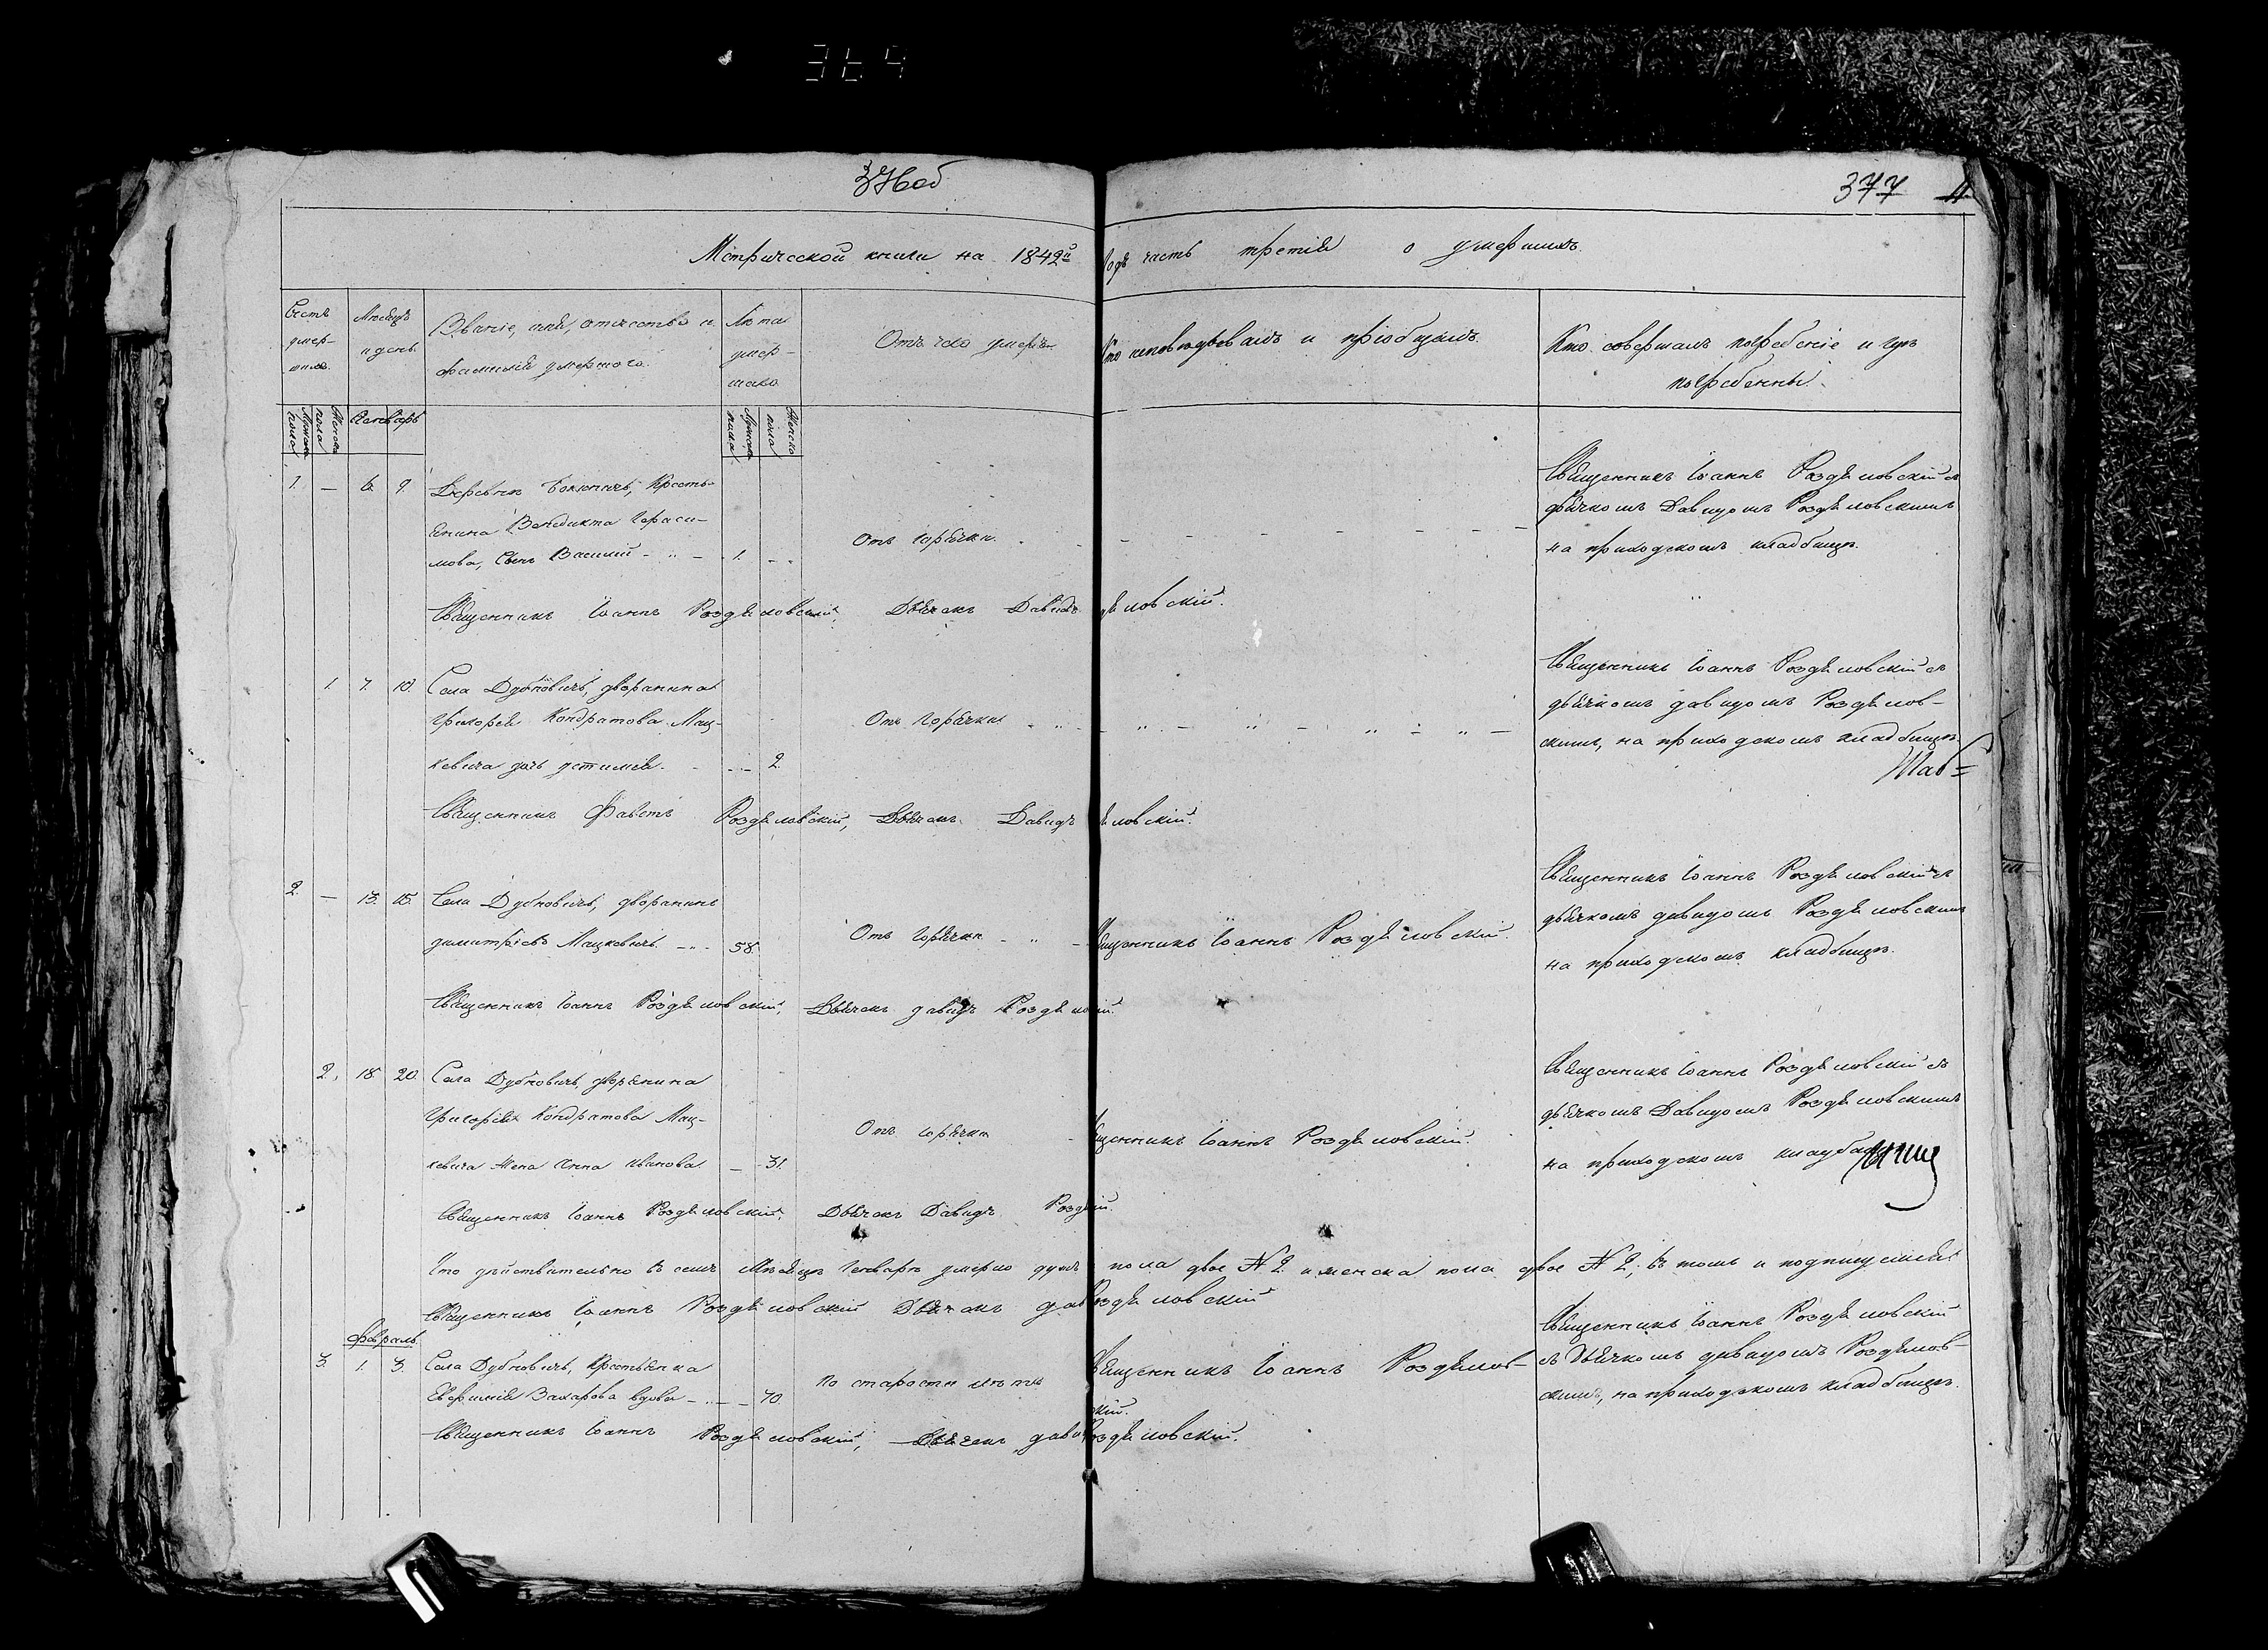 377
Метрической книги на 1842й Годъ часть третія о умершихъ.
Счетъ умер-шихъ.
Мѣсяцъ и день.
Званіе, имя, отчество и фамилія умершаго.
Лѣта умер-шаго
Отъ чего умеръ
Кто исповѣдывалъ и пріобщалъ.
Кто совершалъ погребеніе и гдѣ погребенны.
Мужска пола
Женска пола
Генварь
Мужска пола
Женска пола
1. — 6. 9. Деревни Крестья-
янина Венедикта Гераси-
мова, Сынъ Василий - „ - 1. - -
Отъ Горячки.
Священникъ Іоаннъ Роздѣловскій съ
дьячкомъ Давидомъ Роздѣловскимъ
на приходскомъ кладбищѣ.
Священникъ Іоаннъ Роздѣловскій, Дьячокъ Давидъ дѣловскій.
1. 7. 10. Села Дубновичъ, дворянина
Григорія Кондратова Мац-
кевича дочь - - - 2.
Отъ Горячки
Священникъ Іоаннъ Роздѣловскій съ
дьячкомъ давидомъ Роздѣлов-
скимъ, на приходскомъ кладбищѣ.
Священникъ Роздѣловскій, Дьячокъ Давидъ ѣловскій.
2. — 13. 15. Села Дубновичъ, дворянинъ
димитріевъ Мацкевичъ - „ - 58.
Отъ Горячки - „ -
Священникъ Іоаннъ Роздѣловскій.
Священникъ Іоаннъ Роздѣловскій съ
дьячкомъ давидомъ Роздѣловскимъ
на приходскомъ кладбищѣ.
Священникъ Іоаннъ Роздѣловскій, Дьячокъ давидъ Роздѣловскій.
2. 18. 20. Села Дубновичъ, дворянина
Григорія Кондратова Мац-
кевича Жена Анна Иванова - 31.
Отъ горячки
Священникъ Іоаннъ Роздѣловскій.
Священникъ Іоаннъ Роздѣловскій съ
дьячкомъ Давидомъ Роздѣловскимъ
на приходскомъ
Священникъ Іоаннъ Роздѣловскій, Дьячокъ Давидъ
Что дѣйствительно въ семъ Мѣсяцѣ Генварѣ умерло пола двое № 2. и женска пола двое № 2, въ томъ и подписуемся:
Священникъ Іоаннъ Роздѣловскій Дьячокъ Роздѣловскій
Февраль.
3. 1. 3. Села Дубновичъ, Крестьянка
Захарова вдова - „ - 70.
По старости лѣтъ
Священникъ Іоаннъ Роздѣлов-
скій.
Священникъ Іоаннъ Роздѣловскій
съ Дьячкомъ давидомъ Роздѣлов-
скимъ, на приходскомъ кладбищѣ.
Священникъ Іоаннъ Роздѣловскій, Дьячокъ Роздѣловскій.